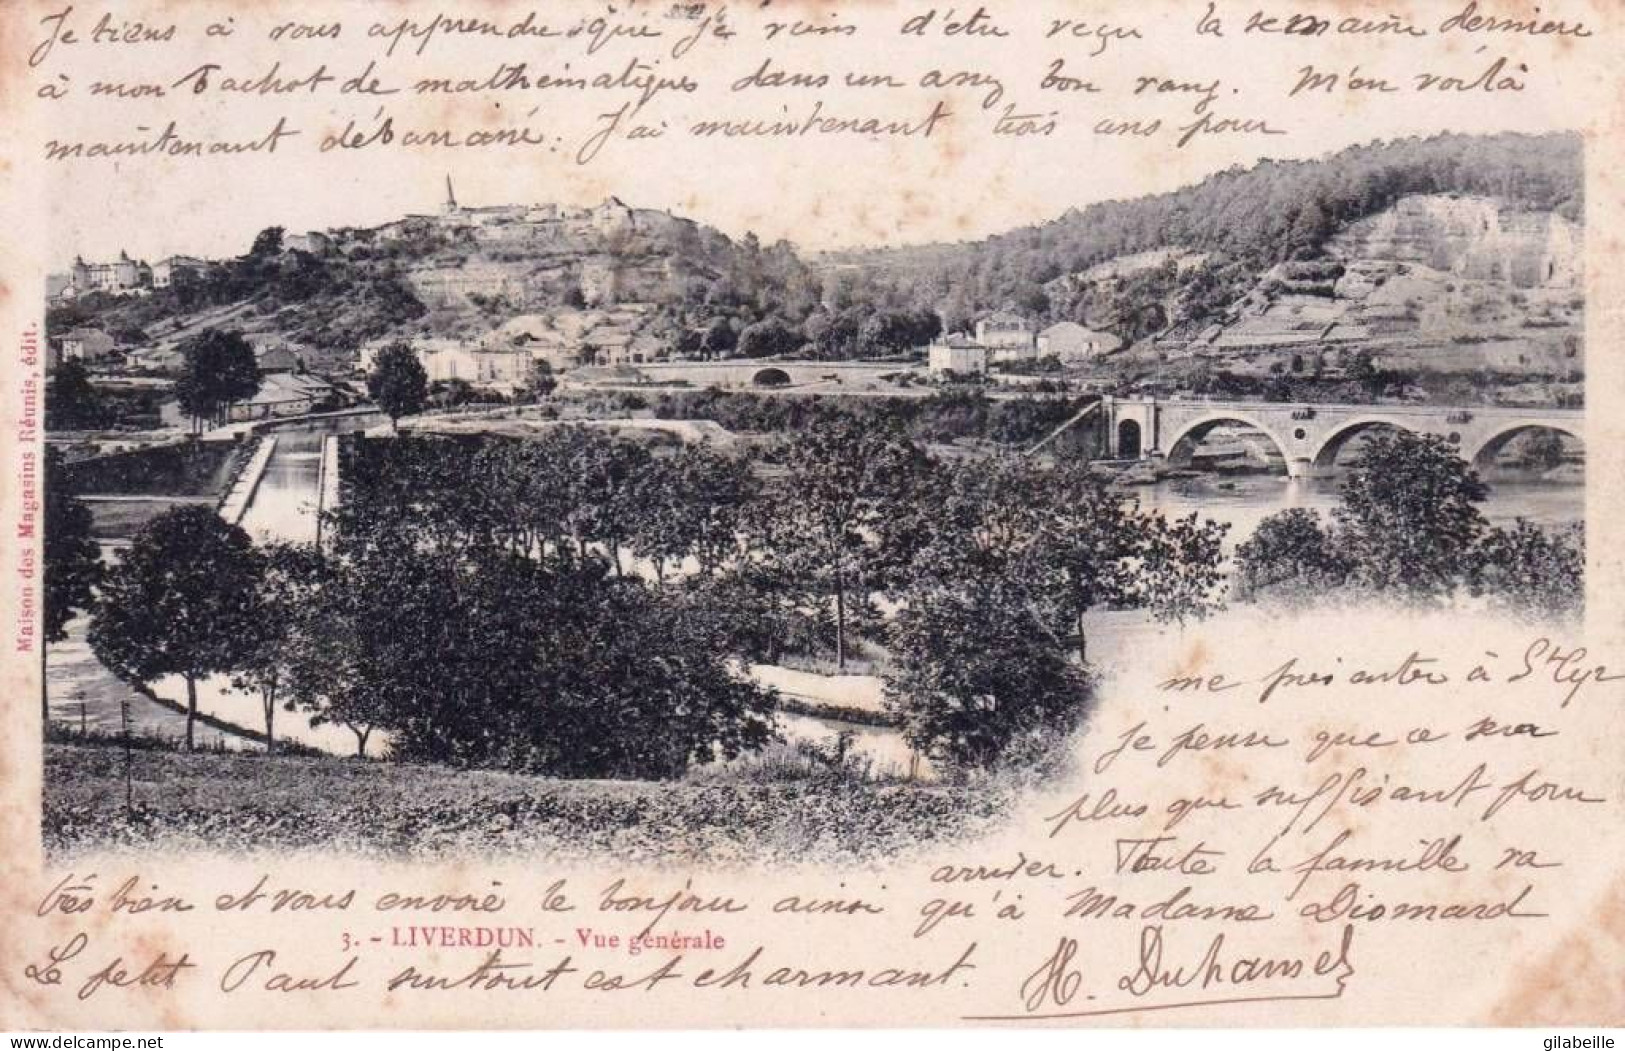 Je tiens à vous apprendre que je viens d'être reçu la semaine dernière
à mon Bachot de mathématiques dans un assez bon rang. M'en voilà
maintenant débarrassé. J'ai maintenant trois ans pour
me présenter à St Cyr
je pense que ce sera
plus que suffisant pour
arriver. Toute la famille va
très bien et vous envoie le bonjour ainsi qu'à Madame Diomard
3. - LIVERDUN. - Vue générale
Le petit Paul surtout est charmant. H. Duhamel
Maison des Magasins Réunis, édit.
delcampe.net
gilabeille